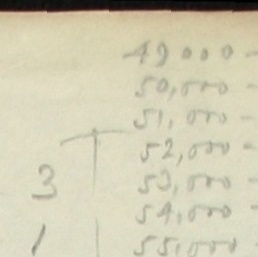 49000 -
50,000 -
51,000 -
52,000 -
3 53,000 -
54,000 -
1 55,000 -